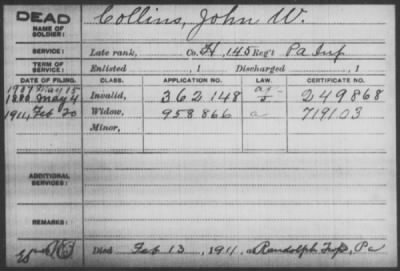 DEAD
NAME OF SOLDIER:
Collins, John W.
SERVICE:
Late rank, Co. H, 145 Reg't Pa Inf
TERM OF SERVICE:
Enlisted , 1 Discharged , 1
DATE OF FILING. CLASS. APPLICATION NO. LAW. CERTIFICATE NO.
May 15
1880 May 4 Invalid, 362148 249868
1911, Feb 20 Widow, 958866 a 719103
Minor,
ADDITIONAL SERVICES:
REMARKS:
Died Feb 13, 1911, at Randolph Twp, Pa